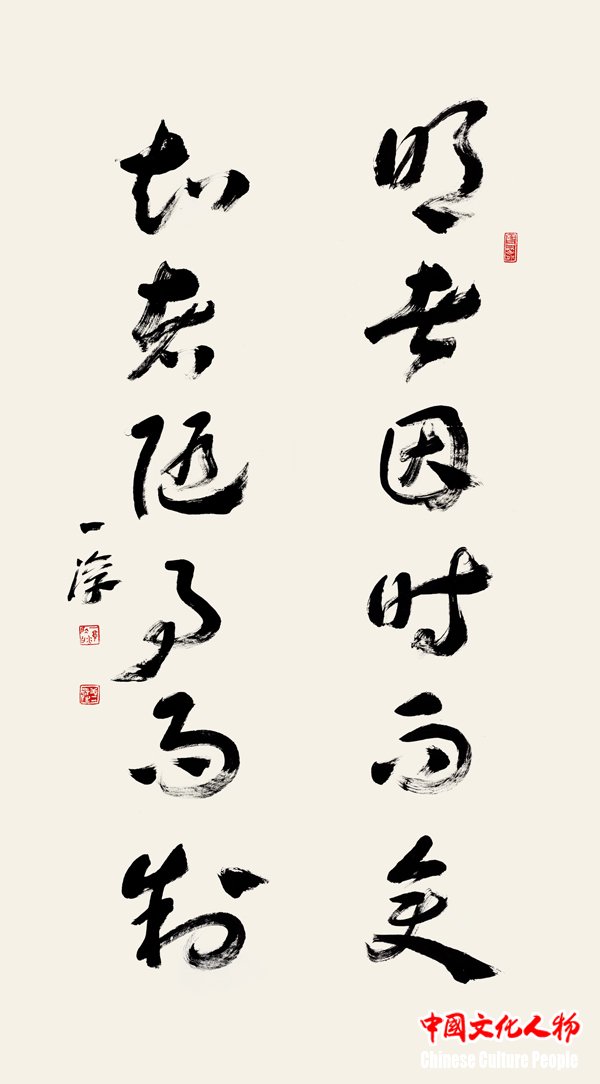 明者因时而变
知者随事而制
中國文化人物
Chinese Culture People